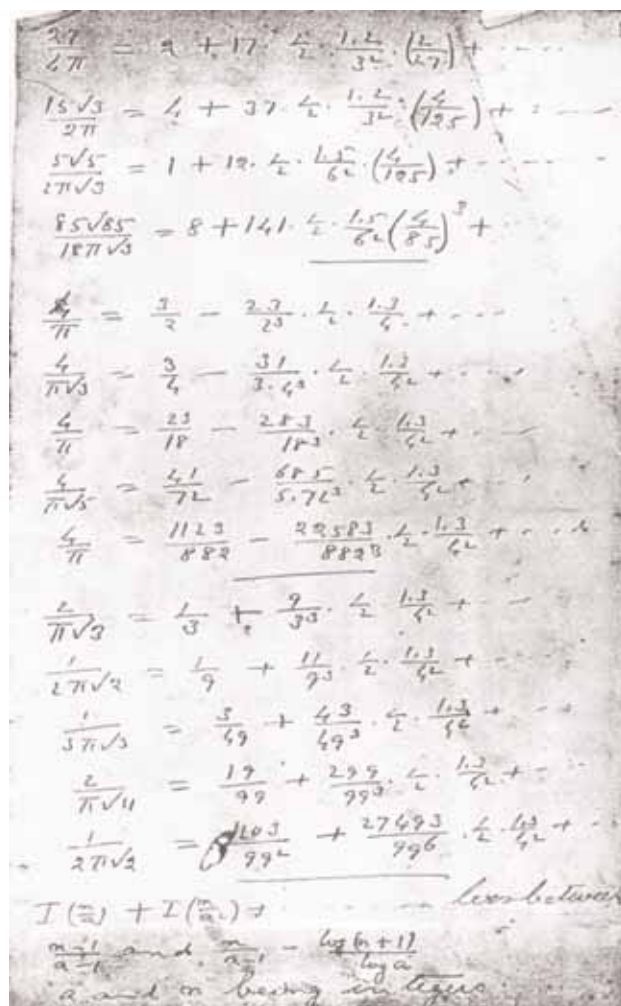 27/4π = 2 + 17 · 1/2 · 1.2/3² · (2/27) + ....
15√3/2π = 4 + 37 · 1/2 · 1.2/3² · (4/125) + ....
5√5/2π√3 = 1 + 12 · 1/2 · 1.5/6² · (4/125) + ....
85√85/18π√3 = 8 + 141 · 1/2 · 1.5/6² (4/85)³ +
4/π = 3/2 - 23/2³ · 1/2 · 1.3/4² + ....
4/π√3 = 3/4 - 31/3.4³ · 1/2 · 1.3/4² + ....
4/π = 23/18 - 283/18³ · 1/2 · 1.3/4² + ....
4/π√5 = 41/72 - 685/5.72³ · 1/2 · 1.3/4² + ....
4/π = 1123/882 - 22583/882³ · 1/2 · 1.3/4² + ....
2/π√3 = 1/3 + 9/3³ · 1/2 · 1.3/4² + ....
1/2π√2 = 1/9 + 11/9³ · 1/2 · 1.3/4² + ....
1/3π√3 = 3/49 + 43/49³ · 1/2 · 1.3/4² + ....
2/π√11 = 19/99 + 299/99³ · 1/2 · 1.3/4² + ....
1/2π√2 = 1103/99² + 27493/99⁶ · 1/2 · 1.3/4² + ....
I(n/a) + I(n/a²) + ........ lies between
n-1/a-1 and n/a-1 - log(n+1)/log a
a and n being integers.